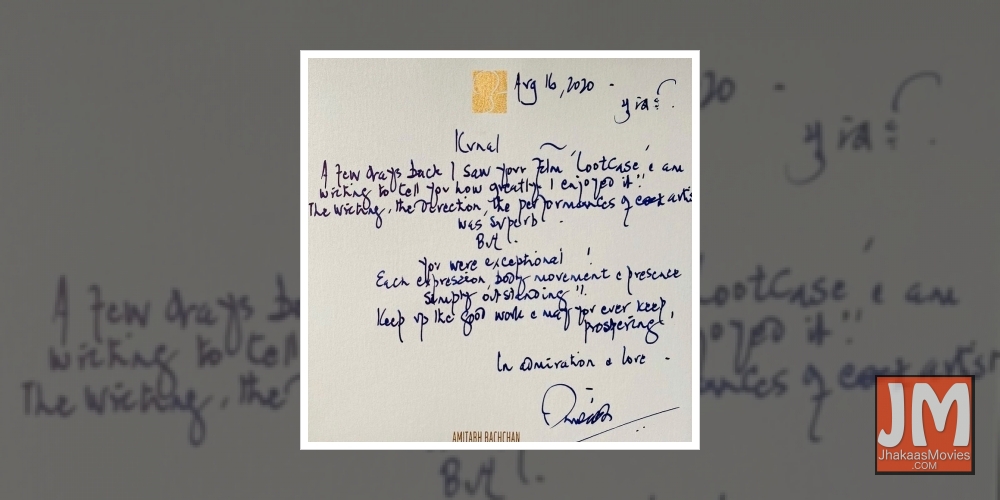 Aug 16, 2020 -
Kunal
A few days back I saw your film 'LootCase' & am
writing to tell you how greatly I enjoyed it !!
The writing, the direction, the performances of each artis
was superb -
But !.
you were exceptional !
Each expression, body movement & presence
simply outstanding !!
Keep up the good work & may you ever keep
prospering !
In admiration & love -
AMITABH BACHCHAN
JM
JhakaasMovies
.COM